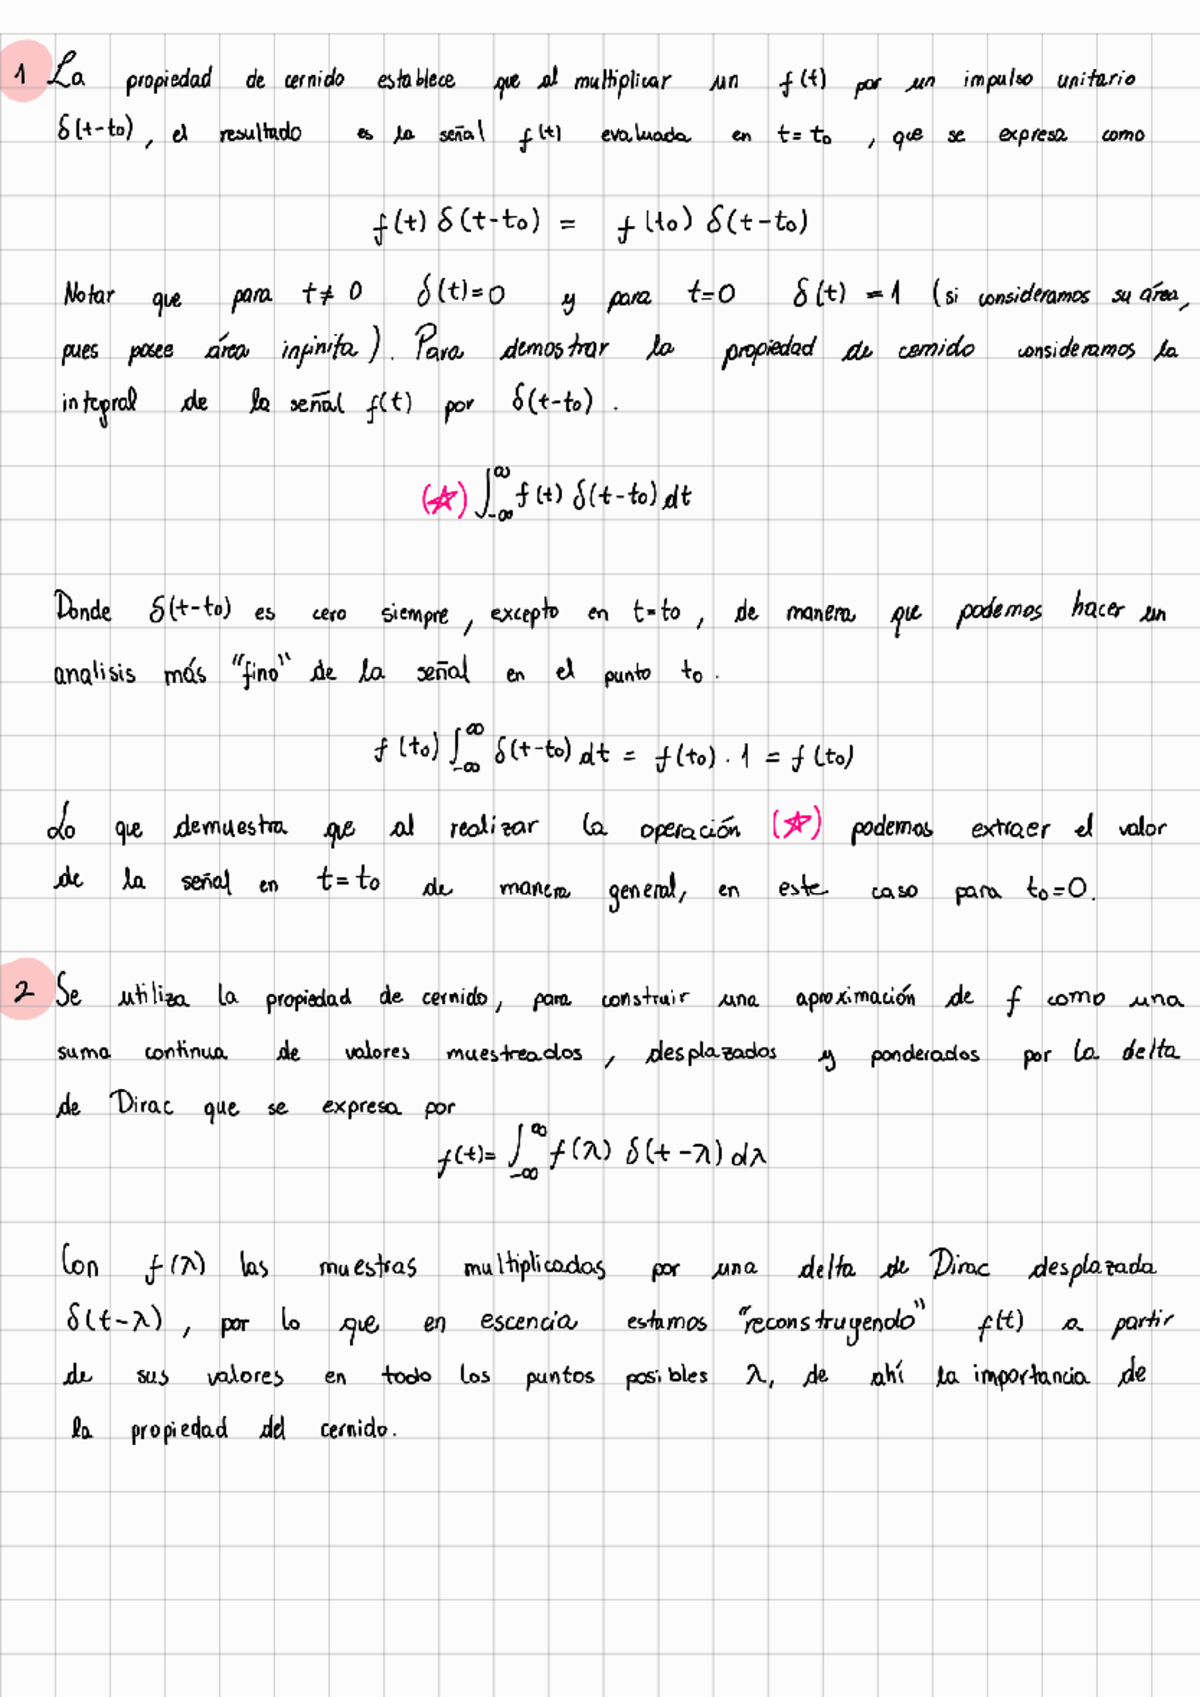 1 La propiedad de cernido establece que al multiplicar un f(t) por un impulso unitario
δ(t-t₀), el resultado es la señal f(t) evaluada en t=t₀, que se expresa como
f(t) δ(t-t₀) = f(t₀) δ(t-t₀)
Notar que para t≠0 δ(t)=0 y para t=0 δ(t)=1 (si consideramos su área,
pues posee área infinita). Para demostrar la propiedad de cernido consideramos la
integral de la señal f(t) por δ(t-t₀).
(☆) ∫_{-∞}^{∞} f(t) δ(t-t₀) dt
Donde δ(t-t₀) es cero siempre, excepto en t=t₀, de manera que podemos hacer un
analisis más "fino" de la señal en el punto t₀.
f(t₀) ∫_{-∞}^{∞} δ(t-t₀) dt = f(t₀) · 1 = f(t₀)
Lo que demuestra que al realizar la operación (☆) podemos extraer el valor
de la señal en t=t₀ de manera general, en este caso para t₀=0.
2 Se utiliza la propiedad de cernido, para construir una aproximación de f como una
suma continua de valores muestreados, desplazados y ponderados por la delta
de Dirac que se expresa por
f(t)= ∫_{-∞}^{∞} f(λ) δ(t-λ) dλ
Con f(λ) las muestras multiplicadas por una delta de Dirac desplazada
δ(t-λ), por lo que en escencia estamos "reconstruyendo" f(t) a partir
de sus valores en todo los puntos posibles λ, de ahí la importancia de
la propiedad del cernido.